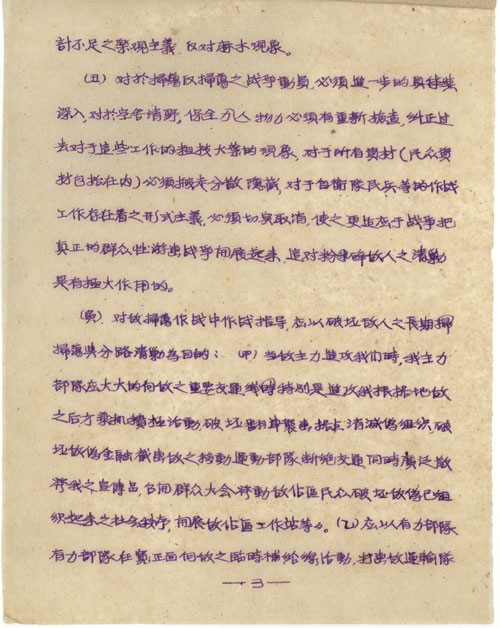 計不足之樂觀主義,反对麻木現象。
(五) 对於掃蕩反掃蕩之战爭動員,必須進一步的具体與
深入,对於空舍清野,保全人力物力必須有重新檢查,纠正过
去对于这些工作的粗枝大葉的現象,对于所有資財(民众資
財包括在内)必須搬走分散隱藏,对于自衛隊民兵等的作战
工作存在着之形式主義,必須切实取消,使之更适应于战爭把
真正的群众性游击战爭開展起来,这对粉碎敌人之清勦
是有極大作用的。
(六) 对敌掃蕩作战中作战指导,应以破坏敌人之長期掃
掃蕩與分路清勦為目的:(甲)当敌主力進攻我们時,我主力
部隊应大大的向敌之重要交通线特别是進攻我根据地敌
之后方乘机積極活動,破坏 襲击据点,消滅偽組織,破
坏敌偽金融截击敌之移動運動部隊断绝交通同時廣泛散
發我之宣傳品,召開群众大会,發動敌佔區民众,破坏敌偽已組
織起来之社会秩序,開展敌佔區工作站等。(乙)应以有力部隊
有力部隊在 正面向敌之臨時補給線活動,打击敌運輸隊
—3—